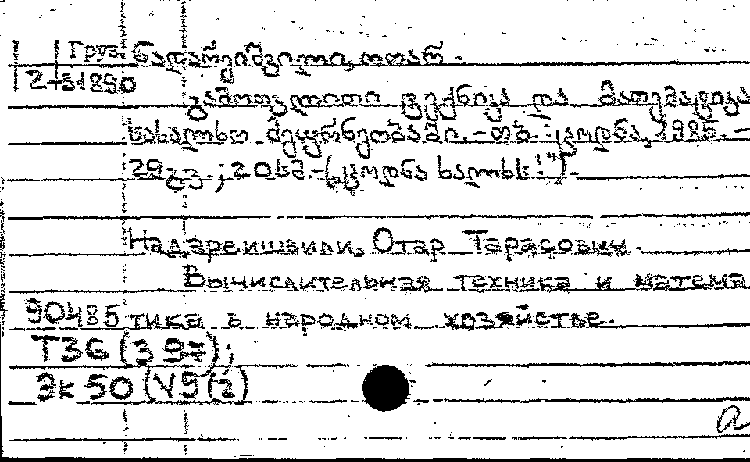 Груз. ნადარეიშვილი, ოთარ.
2-31890
გამოთვლითი ტექნიკა და მათემატიკა
სახალხო მეურნეობაში. - თბ.: ცოდნა, 1986. -
29გვ.; 20სმ. - („ცოდნა ხალხს!“).
Надареишвили, Отар Тарасович.
Вычислительная техника и матема
90485 тика в народном хозяйстве.
Т3G(397);
Эк 50 (У9(2)